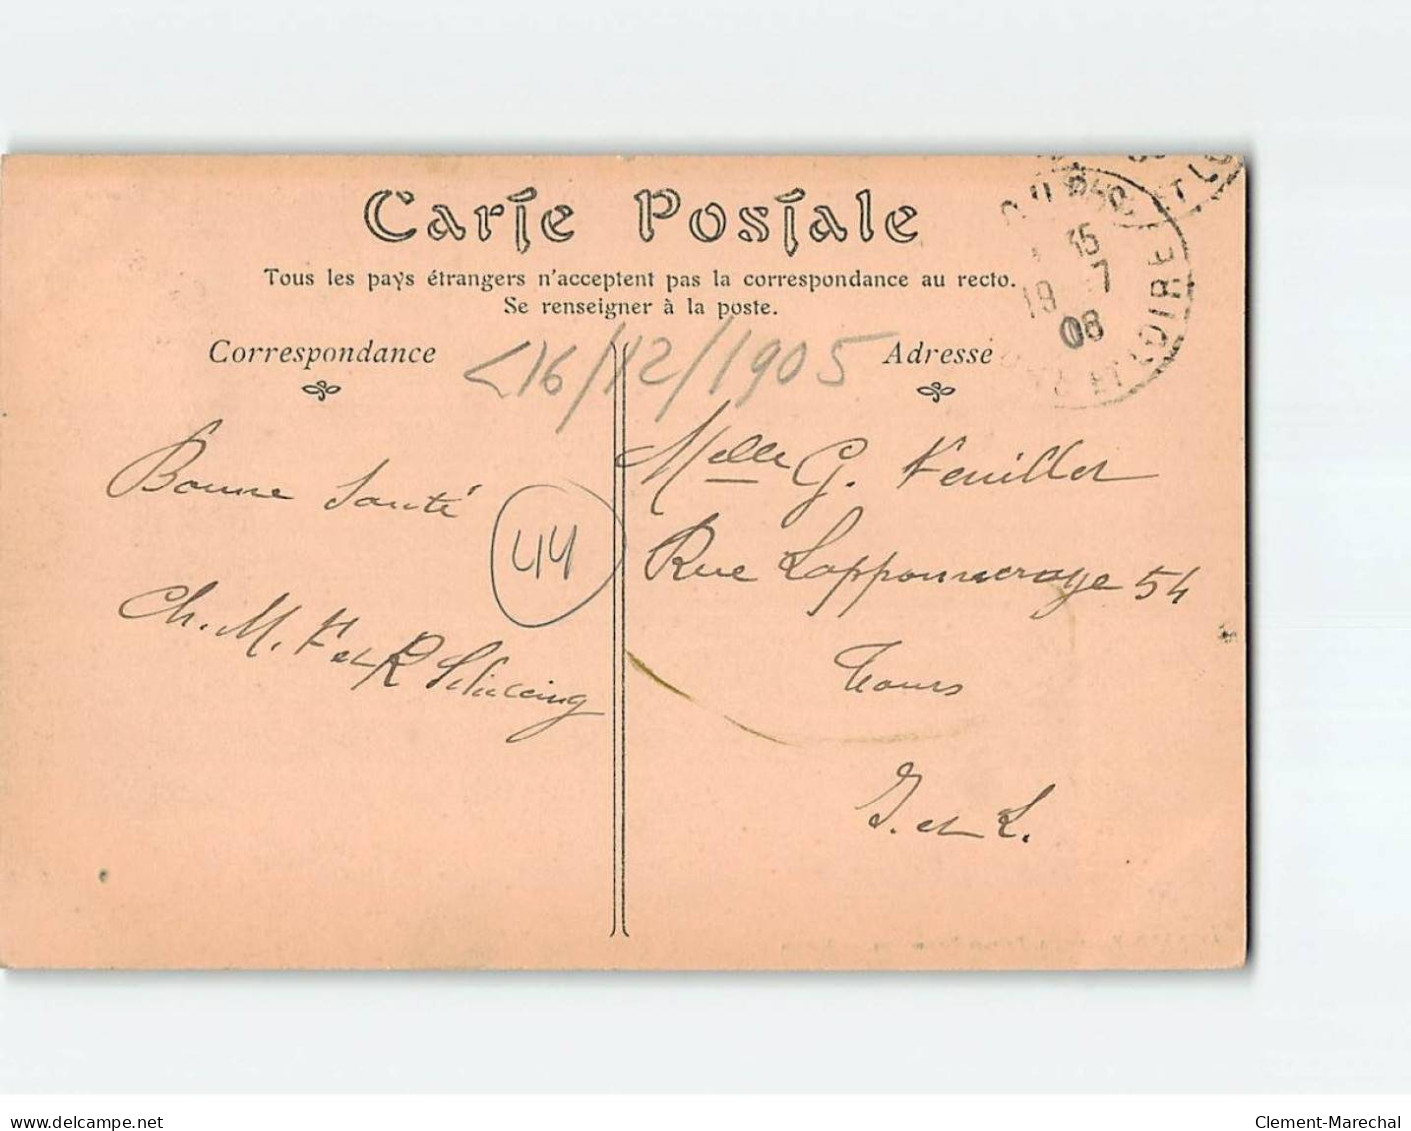 Carte Postale
Tous les pays étrangers n'acceptent pas la correspondance au recto.
Se renseigner à la poste.
Correspondance
Adresse
<16/12/1905
35
19 -7
08
Bonne Santé
44
Ch. M. F et R
Melle G. Feuillet
Rue Lapponneraye 54
Tours
I. et L.
www.delcampe.net
Clement-Marechal